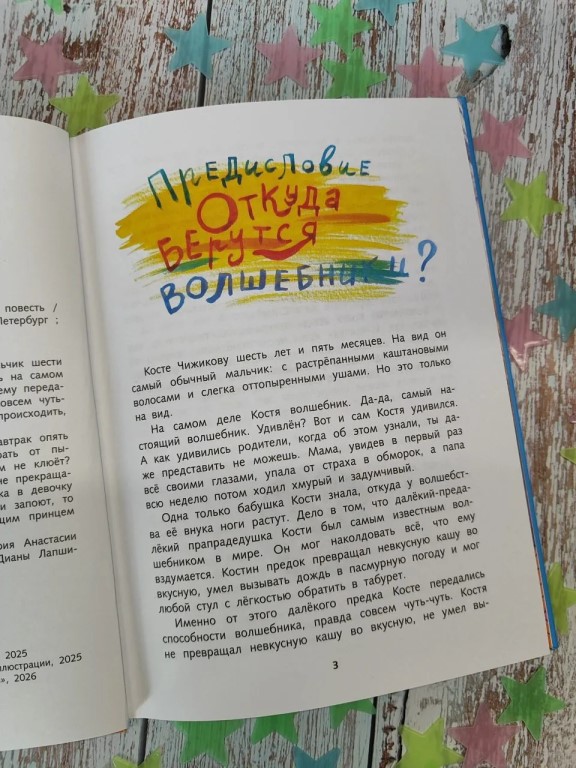 повесть /
Петербург ;
льчик шести
ь на самом
ему переда-
овсем чуть-
происходить,
автрак опять
рать от пы-
м не клюёт?
не прекраща-
ка в девочку
и запоют, то
щим принцем
рия Анастасии
Дианы Лапши-
2025
ллюстрации, 2025
», 2026
ПРЕДИСЛОВИЕ
ОТКУДА
БЕРУТСЯ
ВОЛШЕБНИКИ?
Косте Чижикову шесть лет и пять месяцев. На вид он
самый обычный мальчик: с растрёпанными каштановыми
волосами и слегка оттопыренными ушами. Но это только
на вид.
На самом деле Костя волшебник. Да-да, самый на-
стоящий волшебник. Удивлён? Вот и сам Костя удивился.
А как удивились родители, когда об этом узнали, ты да-
же представить не можешь. Мама, увидев в первый раз
всё своими глазами, упала от страха в обморок, а папа
всю неделю потом ходил хмурый и задумчивый.
Одна только бабушка Кости знала, откуда у волшебст-
ва её внука ноги растут. Дело в том, что далёкий-преда-
лёкий прапрадедушка Кости был самым известным вол-
шебником в мире. Он мог наколдовать всё, что ему
вздумается. Костин предок превращал невкусную кашу во
вкусную, умел вызывать дождь в пасмурную погоду и мог
любой стул с лёгкостью обратить в табурет.
Именно от этого далёкого предка Косте передались
способности волшебника, правда совсем чуть-чуть. Костя
не превращал невкусную кашу во вкусную, не умел вы-
3